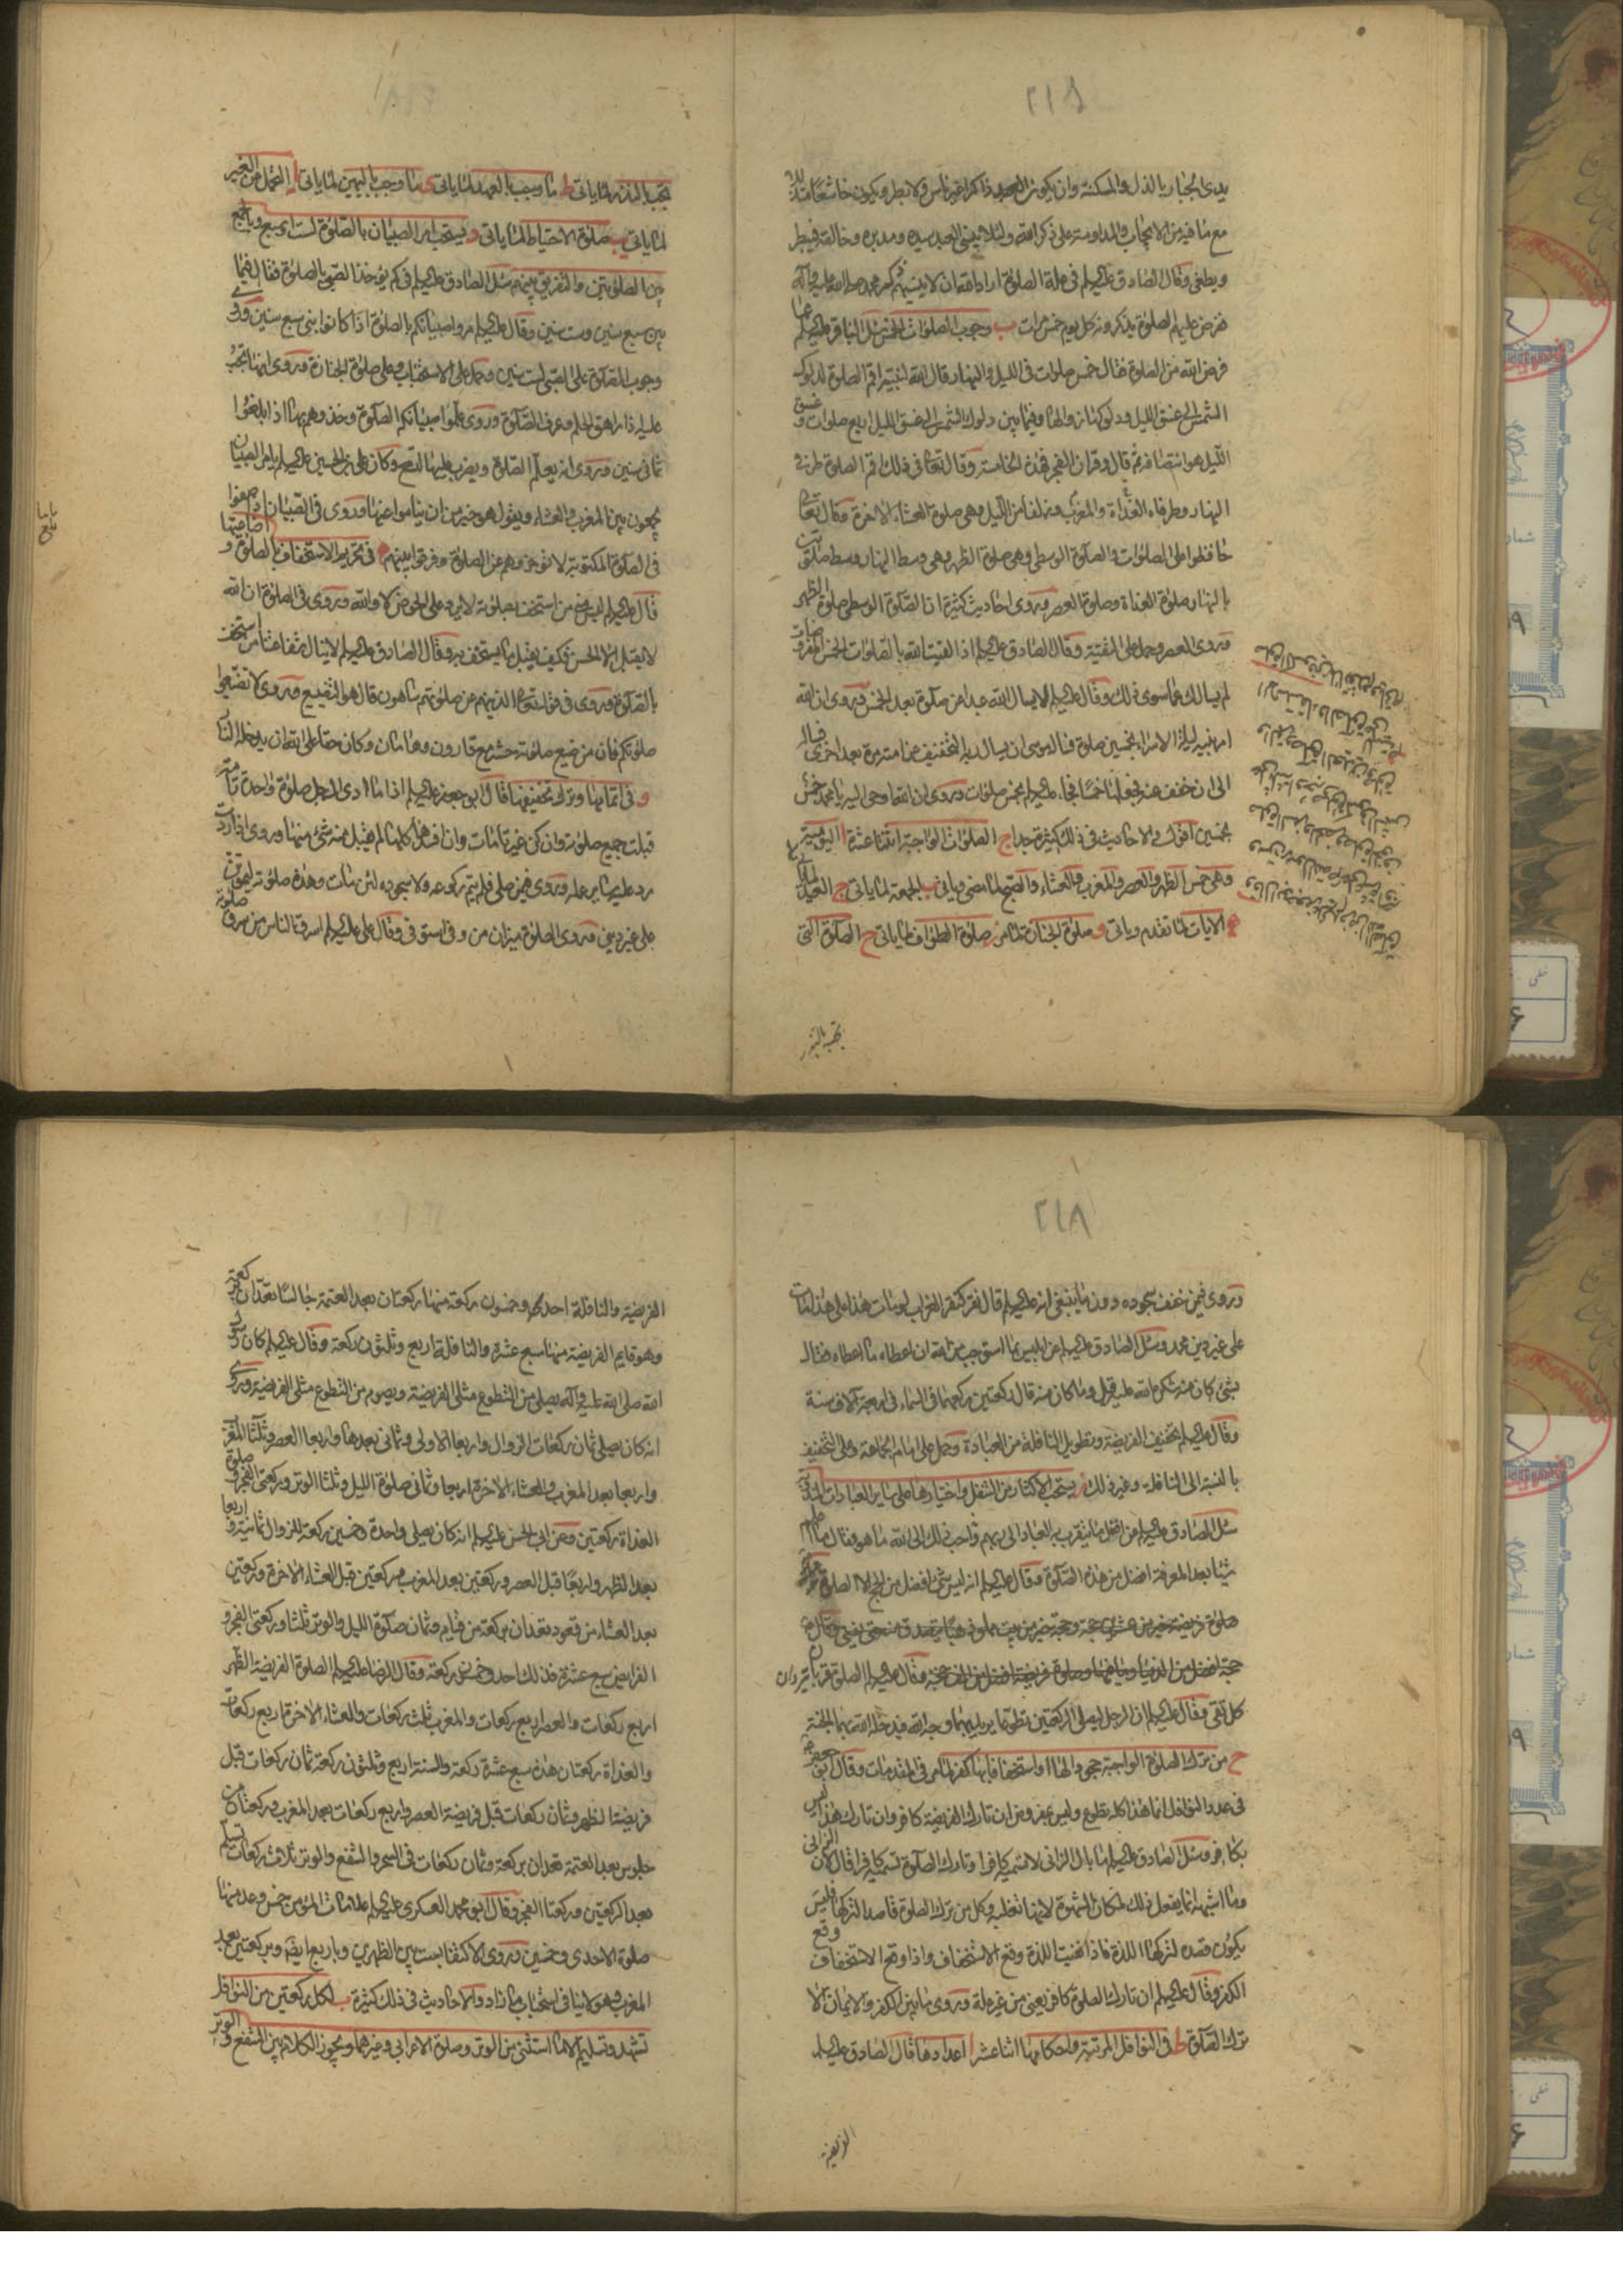 ٢١٧
يدى الجبار بالذل والمسكنة وان يكون العبد ذاكرا غير ناس ولا بطر ويكون خاشعا متذللا
مع ما فيه من الايجاب والمداومة على ذكر الله ولئلا ينسى العبد سيده ومدبره وخالقه فيبطر
ويطغى وقال الصادق عليه السلم فى علة الصلوة اراد الله ان لا ينسيهم ذكر محمد صلى الله عليه وآله
ففرض عليهم الصلوة يذكرونه كل يوم خمس مرات ب وجوب الصلوات الخمس سئل الباقر عليه السلم عما
فرض الله من الصلوة فقال خمس صلوات فى الليل والنهار قال الله لنبيه اقم الصلوة لدلوك
الشمس الى غسق الليل ودلوكها زوالها وفيما بين دلوك الشمس الى غسق الليل اربع صلوات وغسق
الليل هو انتصافه ثم قال وقران الفجر فهذه الخامسة وقال تعالى فى ذلك اقم الصلوة طرفى
النهار وطرفاه الغداة والمغرب وزلفا من الليل وهى صلوة العشاء الاخرة وقال تعالى
حافظوا على الصلوات والصلوة الوسطى وهى صلوة الظهر وهى وسط النهار ووسط صلوتين
بالنهار صلوة الغداة وصلوة العصر وروى احاديث كثيرة ان الصلوة الوسطى صلوة الظهر
وروى العصر وحمل على التقية وقال الصادق عليه السلم اذا لقيت الله بالصلوات الخمس المفروضات
لم يسالك عما سوى ذلك وقال عليه السلم لا يسال الله عبدا عن صلوة بعد الخمس وروى ان الله
امر نبيه ليلة الاسراء بخمسين صلوة فقال موسى ان يسال ربه التخفيف عن امته مرة بعد اخرى فسال
الى ان خفف عنه فجعلها خمسا فجاء عليه السلم بخمس صلوات وروى ان الله اوحى اليه يا محمد خمس
بخمسين اقول والاحاديث فى ذلك كثيرة جدا ج الصلوات الواجبة اثنتا عشرة ا اليومية
وهى خمس الظهر والعصر والمغرب والعشاء والصبح لما مضى وياتى ب الجمعة لما ياتى ج العيد لما ياتى
الايات لما تقدم وياتى و صلوة الجنازة لما مر ز صلوة الطواف لما ياتى ح الصلوة التى
تجب بالنذر
تجب بالنذر لما ياتى ط ما وجب بالعهد لما ياتى ى ما وجب باليمين لما ياتى يا التحمل عن الغير
لما ياتى يب صلوة الاحتياط لما ياتى د ويستحب امر الصبيان بالصلوة لست او سبع وبالجمع
بين الصلوتين والتفريق بينهم سئل الصادق عليه السلم فى كم يؤخذ الصبى بالصلوة فقال فيما
بين سبع سنين وست سنين وقال عليه السلم مروا صبيانكم بالصلوة اذا كانوا بنى سبع سنين وروى
وجوب الصلوة على الصبى لست سنين وحمل على الاستحباب وعلى صلوة الجنازة وروى انها تجب
عليه اذا راهق الحلم وعرف الصلوة وروى علموا صبيانكم الصلوة وخذوهم بها اذا بلغوا
ثمانى سنين وروى انه يعلم الصلوة ويضرب عليها لتسع وكان على بن الحسين عليه السلم يامر الصبيان
يجمعون بين المغرب والعشاء ويقول هو خير من ان يناموا عنها وروى فى الصبيان اذا صفوا
فى الصلوة المكتوبة لا تؤخروهم عن الصلوة وفرقوا بينهم ه فى تحريم الاستخفاف بالصلوة واضاعتها
قال عليه السلم ليس منى من استخف بصلوته لا يرد على الحوض لا والله وروى فى الصلوة ان الله
لا يقبل الا الحسن فكيف يقبل ما يستخف به وقال الصادق عليه السلم لا ينال شفاعتنا من استخف
بالصلوة وروى فى قوله تعالى الذين هم عن صلوتهم ساهون قال هو التضييع وروى لا تضيعوا
صلوتكم فان من ضيع صلوته حشر مع قارون وهامان وكان حقا على الله ان يدخله النار
و فى اتمامها وترك تخفيفها قال ابو جعفر عليه السلم اذا ما ادى الرجل صلوة واحدة تامة
قبلت جميع صلوته وان كن غير تامات وان افسدها كلها لم يقبل منه شئ منها وروى اذا ردت
رد عليه سائر عمله وروى فيمن صلى فلم يتم ركوعه ولا سجوده لئن مات وهذه صلوته ليموتن
على غير دينى وروى الصلوة ميزان من وفى استوفى وقال على عليه السلم اسرق الناس من سرق صلوته
٢١٨
وروى فيمن خفف سجوده دون ما ينبغى انه عليه السلم قال نقر كنقر الغراب لو مات هذا على هذا لمات
على غير دين محمد وسئل الصادق عليه السلم عن ابليس بما استوجب من الله ان اعطاه ما اعطاه فقال
بشئ كان منه شكره الله عليه قيل وما كان منه قال ركعتين ركعهما فى السماء فى اربعة آلاف سنة
وقال عليه السلم تخفيف الفريضة وتطويل النافلة من العبادة وحمل على امام الجماعة وعلى التخفيف
بالنسبة الى النافلة وغير ذلك ز يستحب الاكثار من التنفل واختيارها على ساير العبادات
سئل الصادق عليه السلم عن افضل ما يتقرب به العباد الى ربهم واحب ذلك الى الله ما هو فقال ما اعلم
شيئا بعد المعرفة افضل من هذه الصلوة وقال عليه السلم انه ليس شئ افضل من الحج الا الصلوة
صلوة فريضة خير من عشرين حجة وحجة خير من بيت مملو ذهبا يتصدق منه حتى يفنى وقال
حجة افضل من الدنيا وما فيها وصلوة فريضة افضل من الف حجة وقال عليه السلم الصلوة قربان
كل تقى وقال عليه السلم ان الرجل ليصلى الركعتين تطوعا يريد بهما وجه الله فيدخله الله بهما الجنة
ح من ترك الصلوة الواجبة جحودا لها او استخفافا بها كفر لما مر فى المقدمات وقال ابو جعفر
فى عدد النوافل انما هذا كله تطوع وليس بمفروض ان تارك الفريضة كافر وان تارك هذا ليس
بكافر وسئل الصادق عليه السلم ما بال الزانى لا تسميه كافرا وتارك الصلوة تسميه كافرا قال لان الزانى
وما اشبهه انما يفعل ذلك لمكان الشهوة لانها تغلبه وكل من ترك الصلوة قاصدا لتركها فليس
يكون قصده لتركها اللذة فاذا نفيت اللذة وقع الاستخفاف واذا وقع الاستخفاف وقع
الكفر وقال عليه السلم ان تارك الصلوة كافر يعنى من غير علة وروى ما بين الكفر والايمان الا
ترك الصلوة ط فى النوافل المرتبة واحكامها اثنا عشر ا اعدادها قال الصادق عليه السلم
الفريضة
الفريضة والنافلة احدى وخمسون ركعة منها ركعتان بعد العتمة جالسا تعدان ركعة
وهو قايم الفريضة منها سبع عشرة والنافلة اربع وثلثون ركعة وقال عليه السلم كان رسول
الله صلى الله عليه وآله يصلى من التطوع مثلى الفريضة ويصوم من التطوع مثلى الفريضة وروى
انه كان يصلى ثمان ركعات الزوال واربعا الاولى وثمانى بعدها واربعا العصر وثلثا المغرب
واربعا بعد المغرب والعشاء الاخرة اربعا وثمانى صلوة الليل وثلثا الوتر وركعتى الفجر وصلوة
الغداة ركعتين وعن ابى الحسن عليه السلم انه كان يصلى واحدة وخمسين ركعة الزوال ثمانية واربعا
بعد الظهر واربعا قبل العصر وركعتين بعد المغرب وركعتين قبل العشاء الاخرة وركعتين
بعد العشاء من قعود تعدان بركعة من قيام وثمان صلوة الليل والوتر ثلثا وركعتى الفجر و
الفرايض سبع عشرة فذلك احد وخمسون ركعة وقال الرضا عليه السلم الصلوة الفريضة الظهر
اربع ركعات والعصر اربع ركعات والمغرب ثلث ركعات والعشاء الاخرة اربع ركعات
والغداة ركعتان هذه سبع عشرة ركعة والسنة اربع وثلثون ركعة ثمان ركعات قبل
فريضة الظهر وثمان ركعات قبل فريضة العصر واربع ركعات بعد المغرب وركعتان من
جلوس بعد العتمة تعدان بركعة وثمان ركعات فى السحر والشفع والوتر ثلاث ركعات تسلم
بعد الركعتين وركعتا الفجر وقال ابو محمد العسكرى عليه السلم علامات المؤمن خمس وعد منها
صلوة الاحدى وخمسين وروى الاكتفا بست بين الظهرين وباربع ايضا وبركعتين بعد
المغرب وهو لا ينافى استحباب ما زاد والاحاديث فى ذلك كثيرة ب لكل ركعتين من النوافل
تشهد وتسليم الا ما استثنى من الوتر وصلوة الاعرابى وغيرهما ويجوز الكلام بين الشفع والوتر